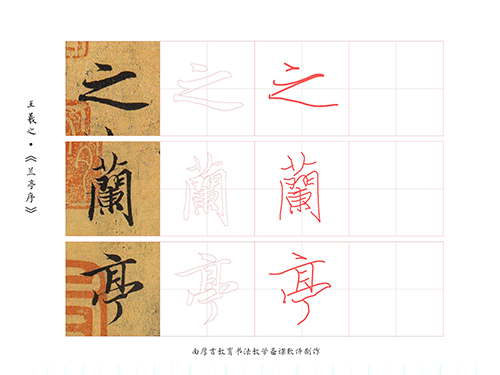 王羲之·《兰亭序》
之 之 之
蘭 蘭 蘭
亭 亭 亭
教育书法教学备课软件制作